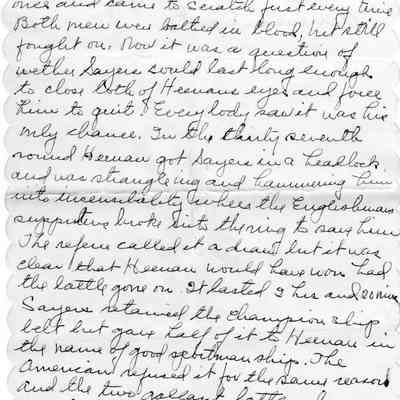 once and came to scratch first every time
Both men were bathed in blood, but still
fought on. Now it was a question of
wether Sayers could last long enough
to close both of Heenans eyes and force
him to quit. Everybody saw it was his
only chance. In the thirty seventh
round Heenan got Sayers in a headlock
and was strangleing and hammering him
into incensibality, when the Englishmans
supporters broke into the ring to save him
The referee called it a draw but it was
clear that Heenan would have won had
the battle gone on. It lasted 2 hrs and 20 mins
Sayers retained the championship
belt but gave half of it to Heenan in
the name of good sportmanship. The
American refused it for the same reason
and the two gallant